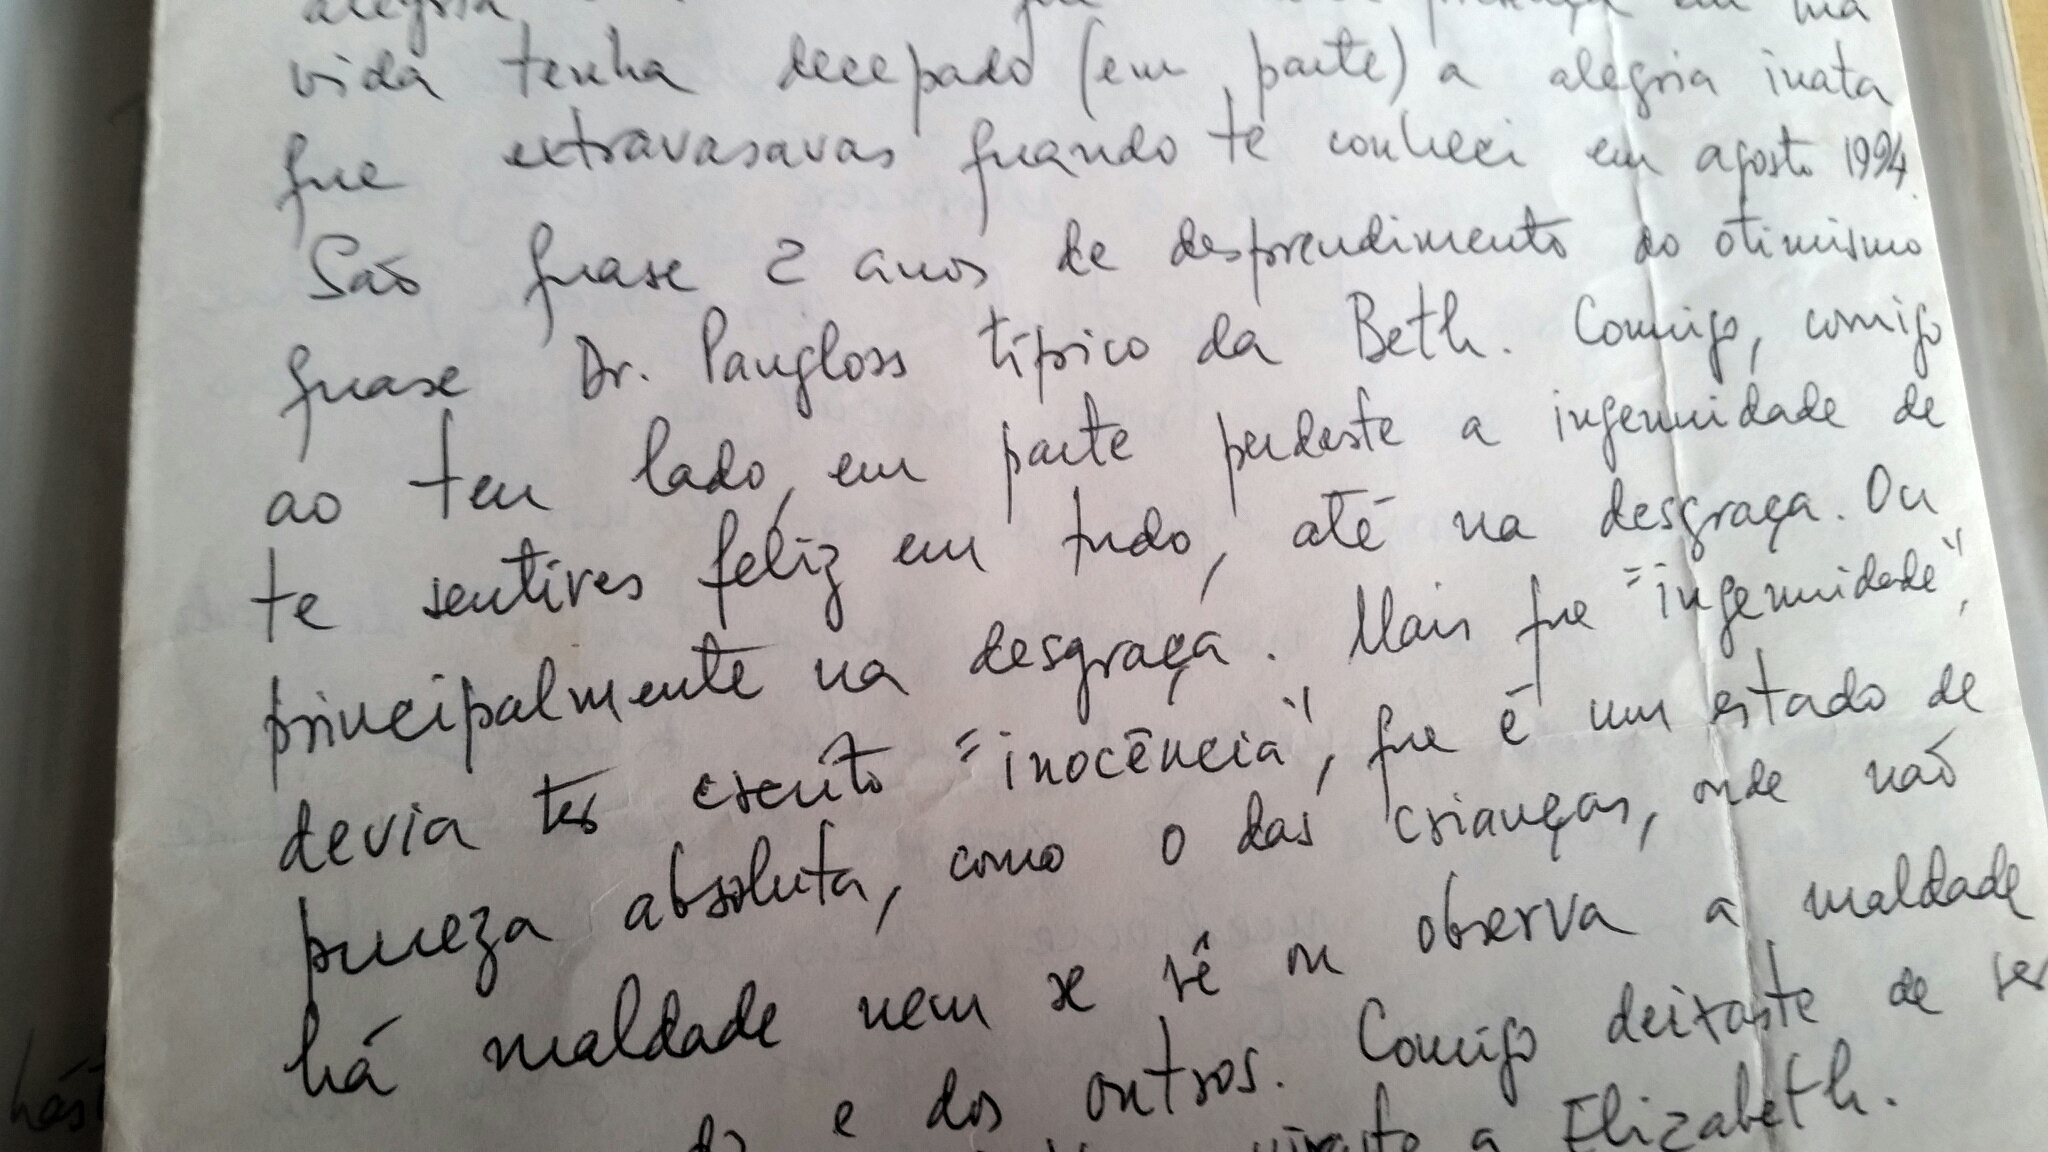 alegria que presença em tua
vida tenha decepado (em parte) a alegria inata
que extravasavas quando te conheci em agosto 1994.
São quase 2 anos de desprendimento do otimismo
quase Dr. Pangloss típico da Beth. Comigo, comigo
ao teu lado, em parte perdeste a ingenuidade de
te sentires feliz em tudo, até na desgraça. Ou
principalmente na desgraça. Mais que "ingenuidade",
devia ter escrito "inocência", que é um estado de
pureza absoluta, como o das crianças, onde não
há maldade nem se vê ou observa a maldade
e dos outros. Comigo deixaste de ser
viraste a Elizabeth.